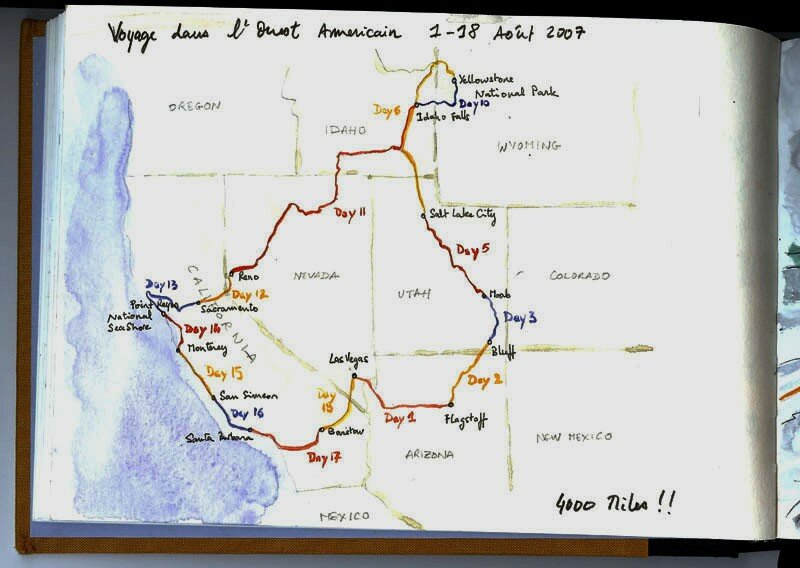 Voyage dans l'Ouest Americain 1-18 Août 2007
Yellowstone
National Park
OREGON
Day 6
Day 10
Idaho Falls
IDAHO
WYOMING
Day 11
Salt Lake City
Day 5
Reno
NEVADA
COLORADO
Day 13
CALIFORNIA
Day 12
UTAH
Moab
Point Reyes
National
SeaShore
Sacramento
Day 3
Day 14
Monterey
Bluff
Las Vegas
Day 15
Day 2
San Simeon
Day
18
Day 1
Flagstaff
Day 16
Santa Barbara
Barstow
NEW MEXICO
Day 17
ARIZONA
4000 Miles !!
MEXICO